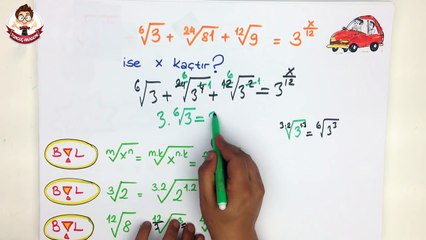 ⁶√3 + ²⁴√81 + ¹²√9 = 3^(x/12)
ise x kaçtır?
⁶√3 + ²⁴√3⁴ + ¹²√3² = 3^(x/12)
6 1 6 1
3.⁶√3 =
³·²√3¹·³ = ⁶√3³
B▽L ᵐ√xⁿ = ᵐ·ᵏ√xⁿ·ᵏ
B▽L ³√2 = ³·²√2¹·²
B▽L ¹²√8 =